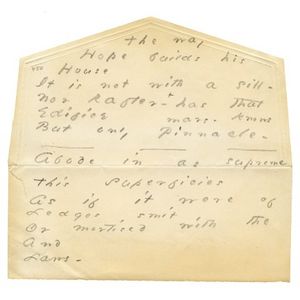 The way
Hope builds his
450
House
It is not with a sill -
Nor Rafter - has that
Edifice mars - knows
But only Pinnacle -
Abode in as supreme
This superficies
As if it were of
Ledges smit
Or mortised with the
And
Laws -